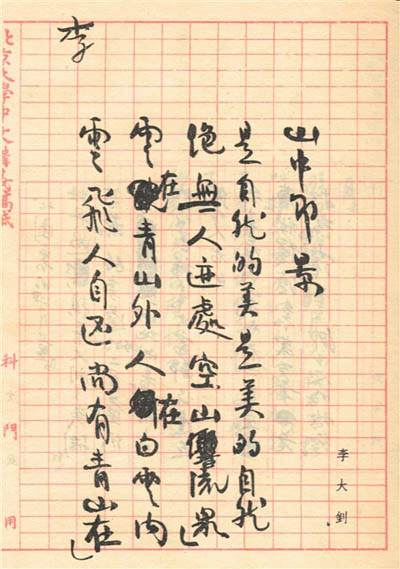 李大釗
山中即景
是自然的美是美的自然
绝無人迹處空山響流泉
雲在青山外人在白雲内
雲飛人自还尚有青山在
李
北京大學
科門用